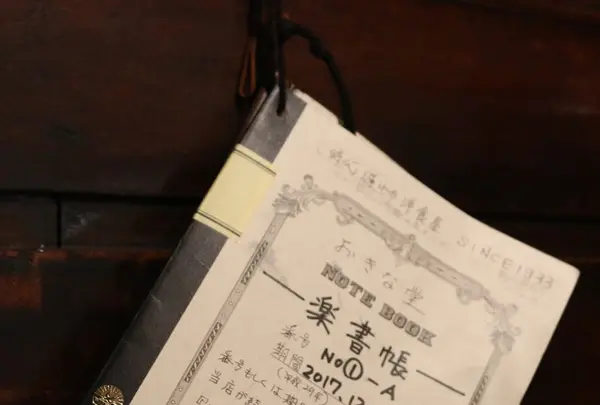 時代遅れの洋食屋 SINCE1933
おきな堂
NOTE BOOK
楽書帳
番号 No①-A
期間 2017.12
(平成29年)
番号もしくは期
当店が